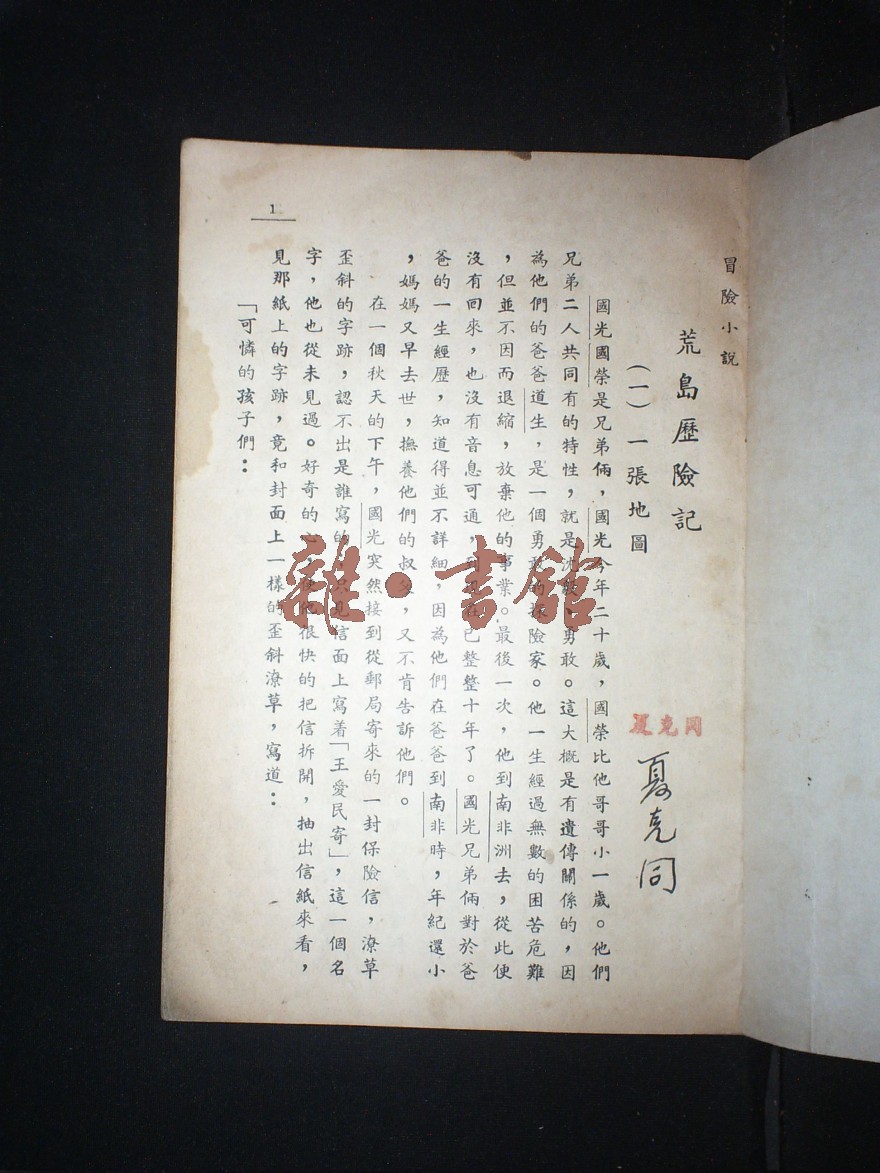 冒險小說
荒島歷險記
(一)一張地圖
夏克同
夏克同
國光國榮是兄弟倆，國光今年二十歲，國榮比他哥哥小一歲。他們
兄弟二人共同有的特性，就是沈 勇敢。這大概是有遺傳關係的，因
為他們的爸爸道生，是一個勇敢的探險家。他一生經過無數的困苦危難
，但並不因而退縮，放棄他的事業。最後一次，他到南非洲去，從此便
沒有回來，也沒有音息可通，到 已整整十年了。國光兄弟倆對於爸
爸的一生經歷，知道得並不詳細，因為他們在爸爸到南非時，年紀還小
，媽媽又早去世，撫養他們的叔 ，又不肯告訴他們。
在一個秋天的下午，國光突然接到從郵局寄來的一封保險信，潦草
歪斜的字跡，認不出是誰寫的 只見信面上寫着「王愛民寄」，這一個名
字，他也從未見過。好奇的 他很快的把信拆開，抽出信紙來看，
見那紙上的字跡，竟和封面上一樣的歪斜潦草，寫道：
「可憐的孩子們：
1
雜·書館